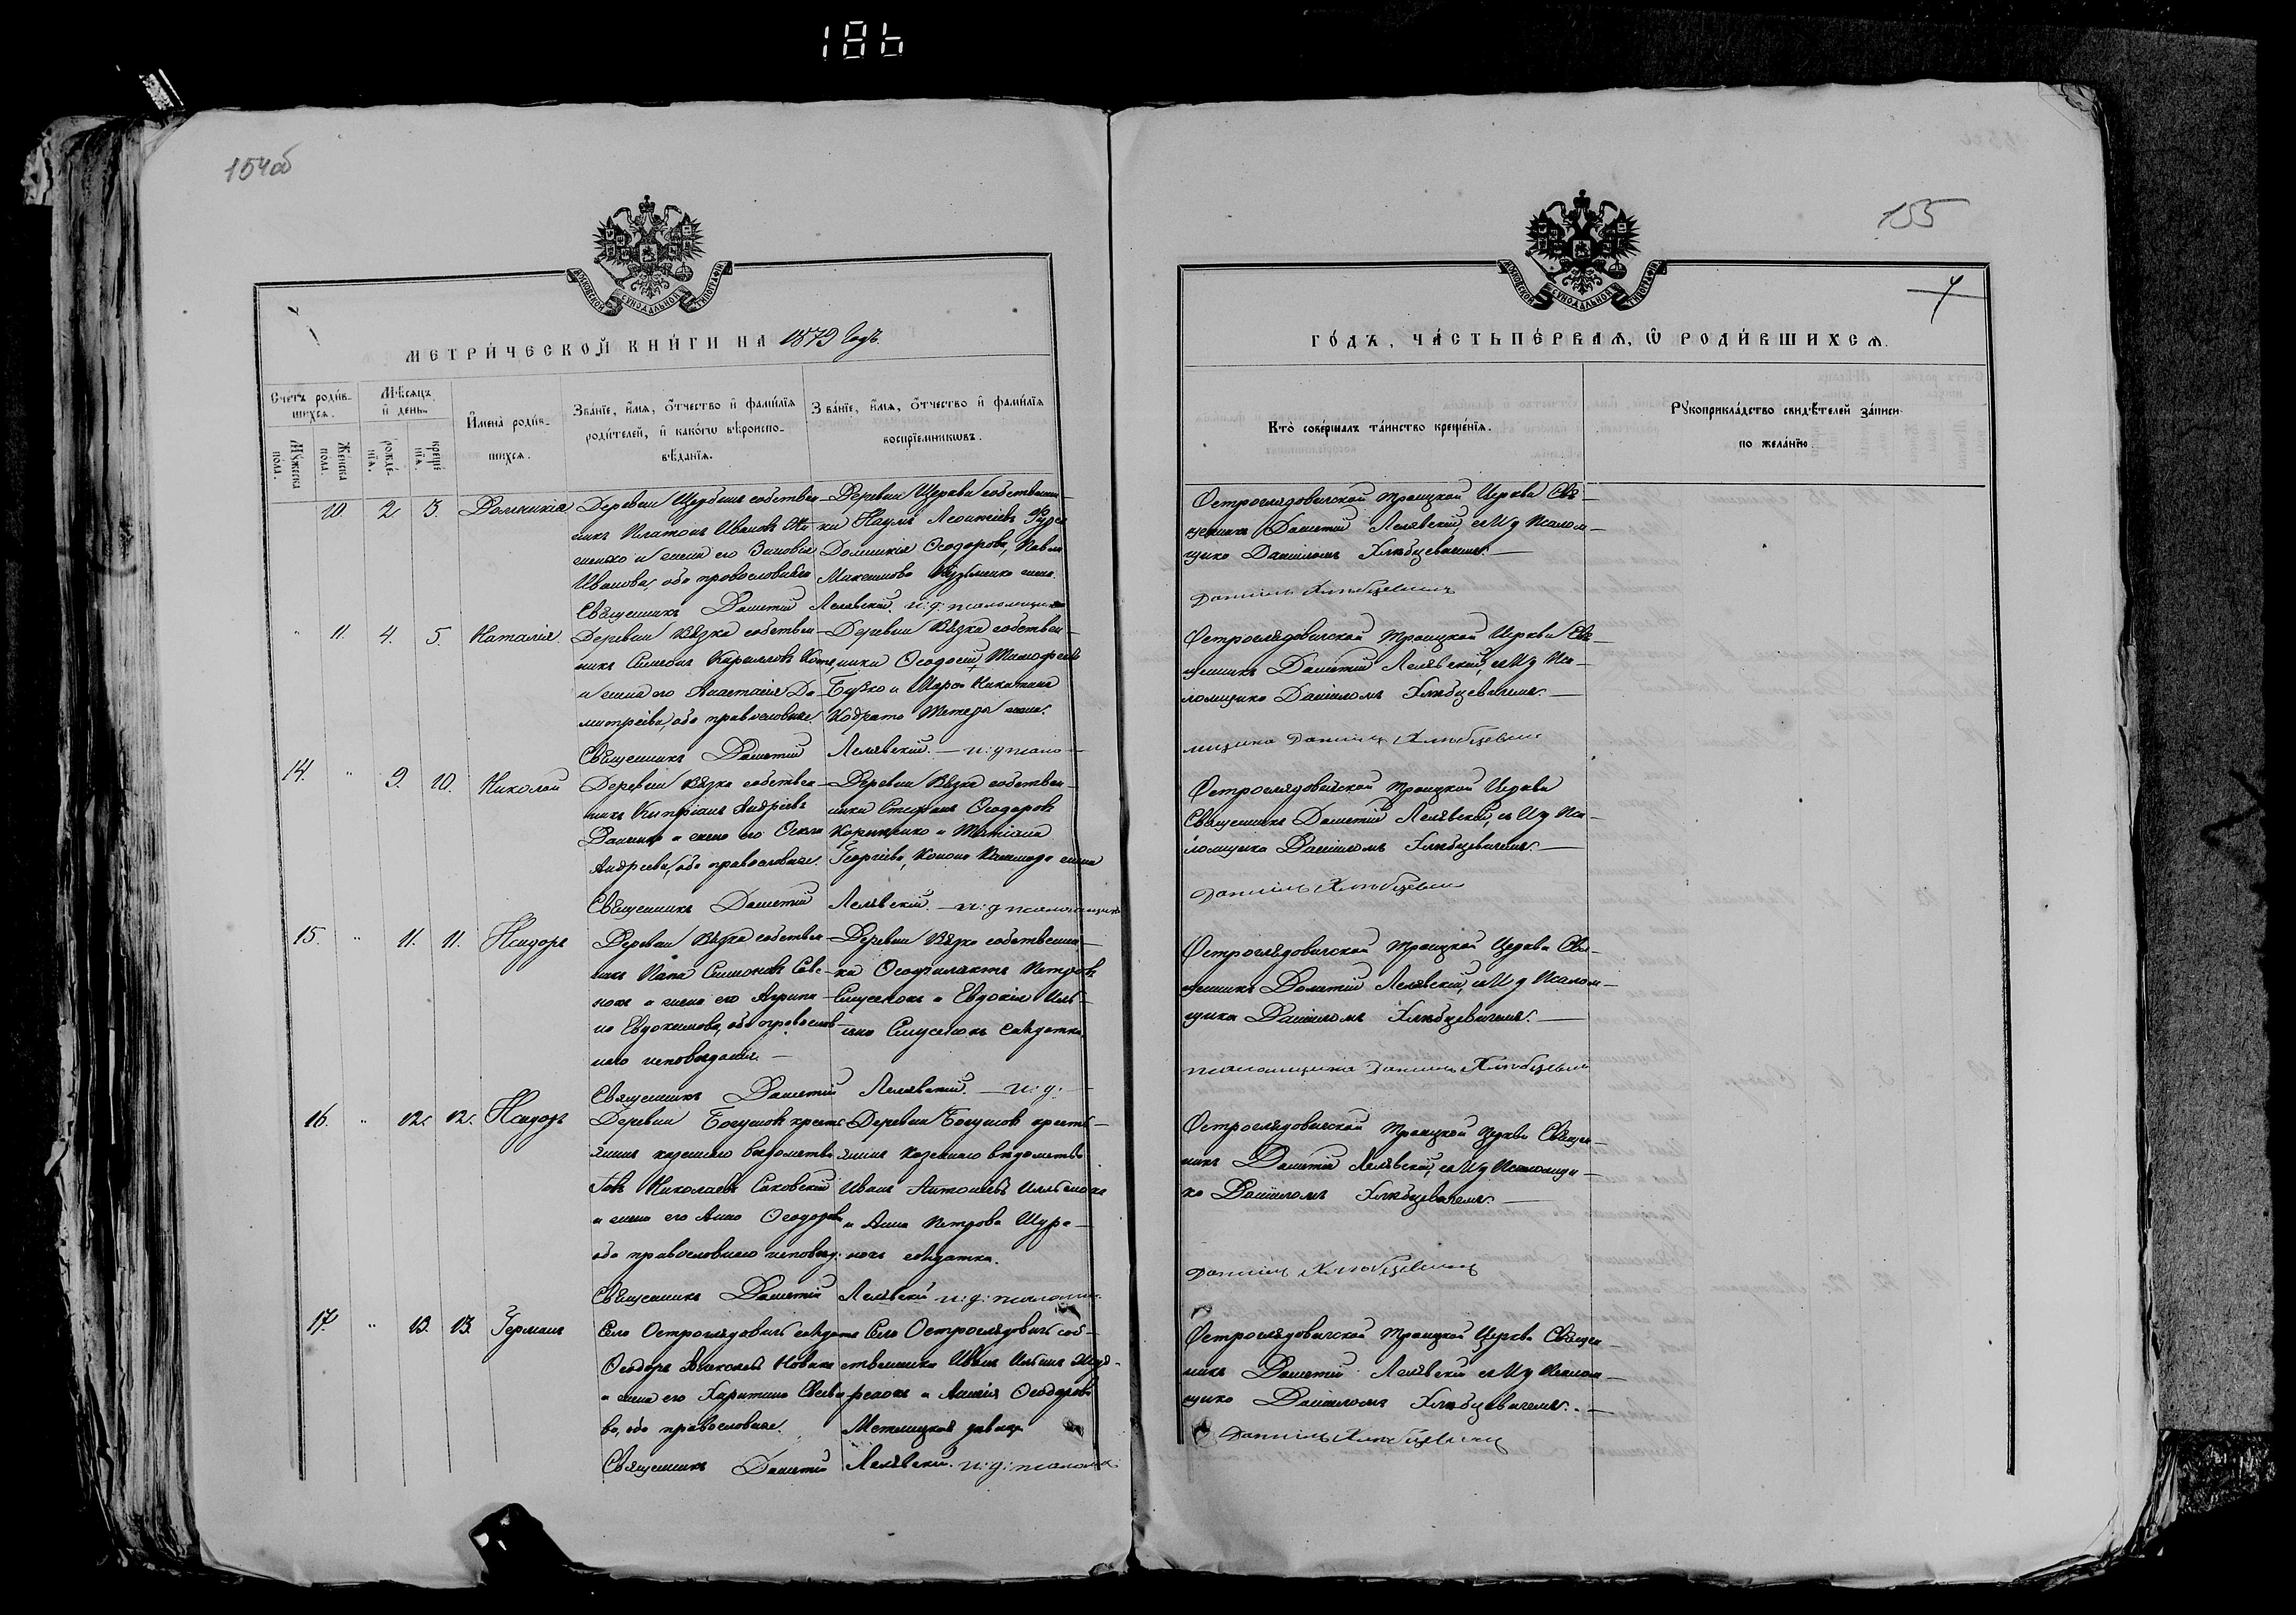 186
154об
155
МОСКОВСКОЙ СУНОДАЛЬНОЙ ТИПОГРАФІИ
МЕТРИ́ЧЕСКОЙ КНИ́ГИ НА 1879 Годъ.
Сче́тъ роди́в-
шихсѧ.
Мѣ́сѧцъ
и҆ день.
Мꙋ́жеска
по́ла.
Же́нска
по́ла.
рожде́-
нїѧ.
креще́
нїѧ.
И҆мена̀ роди́в-
шихсѧ.
Зва́нїе, и҆́мѧ, ѻ҆́тчество и҆ фами́лїѧ
роди́телей, и҆ како́гѡ вѣроиспо-
вѣ́данїѧ.
Зва́нїе, и҆́мѧ, ѻ҆́тчество и҆ фами́лїѧ
воспрїе́мникѡвъ.
10. 2. 3. Домникія
Деревни Щербина собствен-
никъ Платонъ Ивановъ
и жена его Зиновія
Иванова, оба православные
Деревни собственни-
ки Наумъ Леонтіевъ
Домникія Ѳеодорова, Павла
Максимова Кузьменко жена.
Священникъ Дометій Лелявскій. и: д: псаломщика
11. 4. 5. Наталія
Деревни Вязка собствен-
никъ Симеонъ Карпловъ
и жена его Анастасія Ди-
митріева, оба православные.
Деревни Вязка собствен-
ники Ѳеодосій Тимофеевъ
Бузко и Марѳа Никитина
Кодрата Тетеры жена.
Священникъ Дометій Лелявскій. — и: д псало-
14. " 9. 10. Николай
Деревни Вязка собствен-
никъ Кипріанъ Андреевъ
и жена его Ѳекла
Андреева, оба православные.
Деревни Вязка собствен-
ники Стефанъ Ѳеодоровъ
и Татіана
Георгіева, Конона жена
Священникъ Дометій Лелявскій. — и: д псаломщика
15. " 11. 11. Исидоръ
Деревни Вязка собствен-
никъ Папа Симоновъ Сав-
нокъ и жена его Агрипи-
на Евдокимова, оба православ-
наго исповеданія. —
Деревни Вязка собственни-
ки Ѳеофилактъ Петровъ
и Евдокія Иль-
ина солдатка.
Священникъ Дометій Лелявскій. — и: д: —
16. " 12. 12. Исидоръ
Деревни Богушовъ кресть-
янинъ казеннаго ведомства
Николаевъ Саковскій
и жена его Анна Ѳеодорова
оба православнаго исповед:
Деревни Богушовъ кресть-
янинъ казеннаго ведомства
Иванъ Антоніевъ
и Анна Петрова
солдатка.
Священникъ Дометій Лелявскій и: д: псаломщ.
17. " 13. 13. Германъ
Село Остроглядовичъ солдатъ
Ѳеодоръ Новикъ
и жена его Харитина
ва, оба православные.
Село Остроглядовичъ соб-
ственники Иванъ Ильинъ
и Анна Ѳеодорова
Метлицкая девица
Священникъ Дометій Лелявскій. и: д: псалом
ГО́ДЪ, ЧА́СТЬ ПЕ́РВАѦ, Ѡ҆ РОДИ́ВШИХСѦ.
Кто̀ соверша́лъ та́инство креще́нїѧ.
Рꙋкоприкла́дство свидѣ́телей за́писи
по жела́нїю.
Остроглядовичской Троицкой Церкви Свя-
щенникъ Дометій Лелявскій съ И д Псалом-
щика Даніиломъ Хлебцевичемъ. —
Даніилъ Хлебцевичъ
Остроглядовичской Троицкой Церкви Свя-
щенникъ Дометій Лелявскій, съ И д Пса-
ломщика Даніиломъ Хлебцевичемъ. —
мщика Даніилъ Хлебцевичъ
Остроглядовичской Троицкой Церкви
Священникъ Дометій Лелявскій, съ И д Пса-
ломщика Даніиломъ Хлебцевичемъ. —
Даніилъ Хлебцевичъ
Остроглядовичской Троицкой Церкви Свя-
щенникъ Дометій Лелявскій, съ И д Псалом-
щика Даніиломъ Хлебцевичемъ. —
псаломщика Даніилъ Хлебцевичъ
Остроглядовичской Троицкой Церкви Священ-
никъ Дометій Лелявскій, съ И д Псаломщи-
ка Даніиломъ Хлебцевичемъ. —
Даніилъ Хлебцевичъ
Остроглядовичской Троицкой Церкви Священ-
никъ Дометій Лелявскій съ И д Псалом-
щика Даніиломъ Хлебцевичемъ. —
Даніилъ Хлебцевичъ